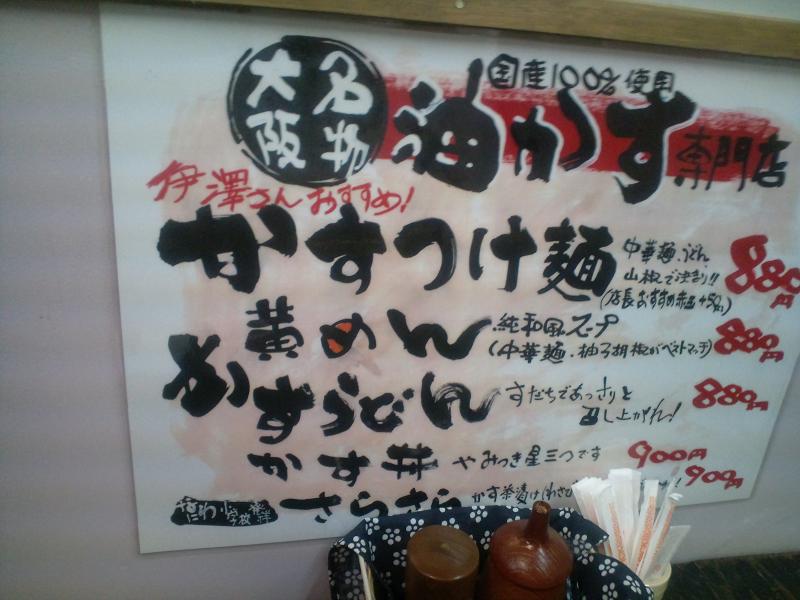 国産100%使用
大阪名物
油かす専門店
伊澤さんおすすめ!
かすつけ麺
中華麺、うどん
山椒で決まり!!
(店長おすすめ赤玉+50円)
880円
黄めん
純和風スープ
(中華麺・柚子胡椒がベストマッチ)
880円
かすうどん
すだちであっさりと
召し上がれ!
880円
かす丼
やみつき星三つです
900円
さらさら
かす茶漬け(わさび
900円
なにわ小学校